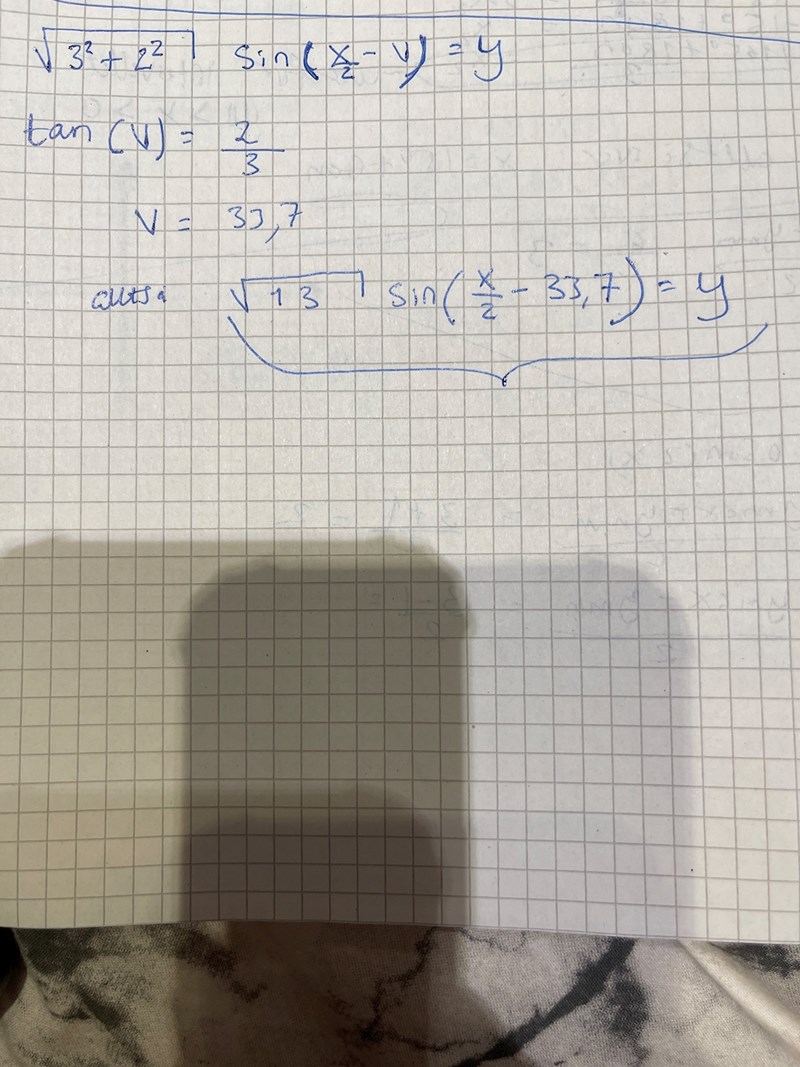 √3² + 2² sin(x/2 - v) = y
tan (v) = 2/3
v = 33,7
alltså √13 sin(x/2 - 33,7) = y